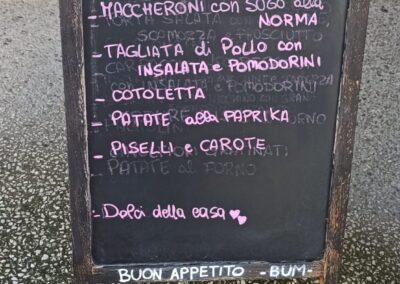 - MACCHERONI con SUGO alla
NORMA
- TAGLIATA di POLLO con
INSALATA e POMODORINI
- COTOLETTA
- PATATE alla PAPRIKA
- PISELLI e CAROTE
PATATE al FORNO
- Dolci della casa
BUON APPETITO -BUM-